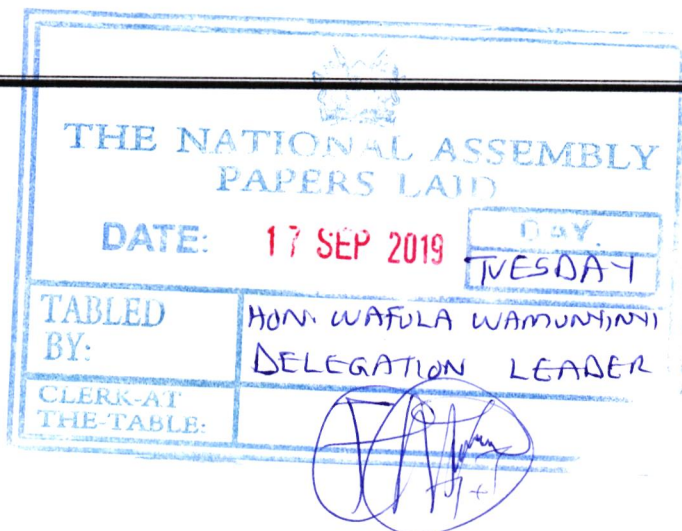 THE NATIONAL ASSEMBLY
PAPERS LAID
DATE: 17 SEP 2019 DAY.
TUESDAY
TABLED BY: HON. WAFULA WAMUNYINYI
DELEGATION LEADER
CLERK-AT THE-TABLE: